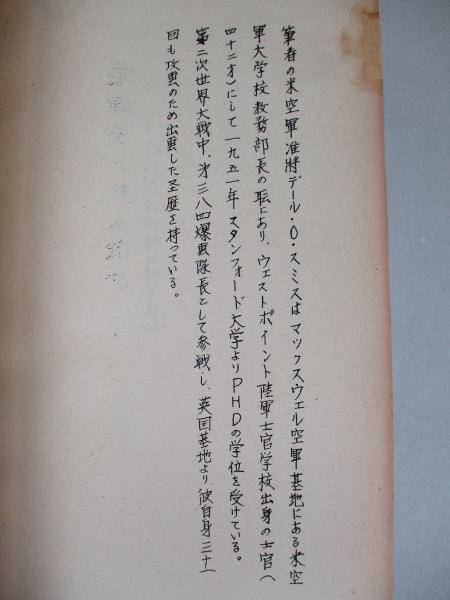 筆者の米空軍准将デール・O・スミスはマックスウェル空軍基地にある米空
軍大学校教務部長の職にあり、ウェストポイント陸軍士官学校出身の士官(
四十二才)にして一九五一年スタンフォード大学よりPHDの学位を受けている。
第二次世界大戦中、才三八四爆撃隊長として参戦し、英国基地より彼自身三十一
回も攻撃のため出撃した圣歴を持っている。